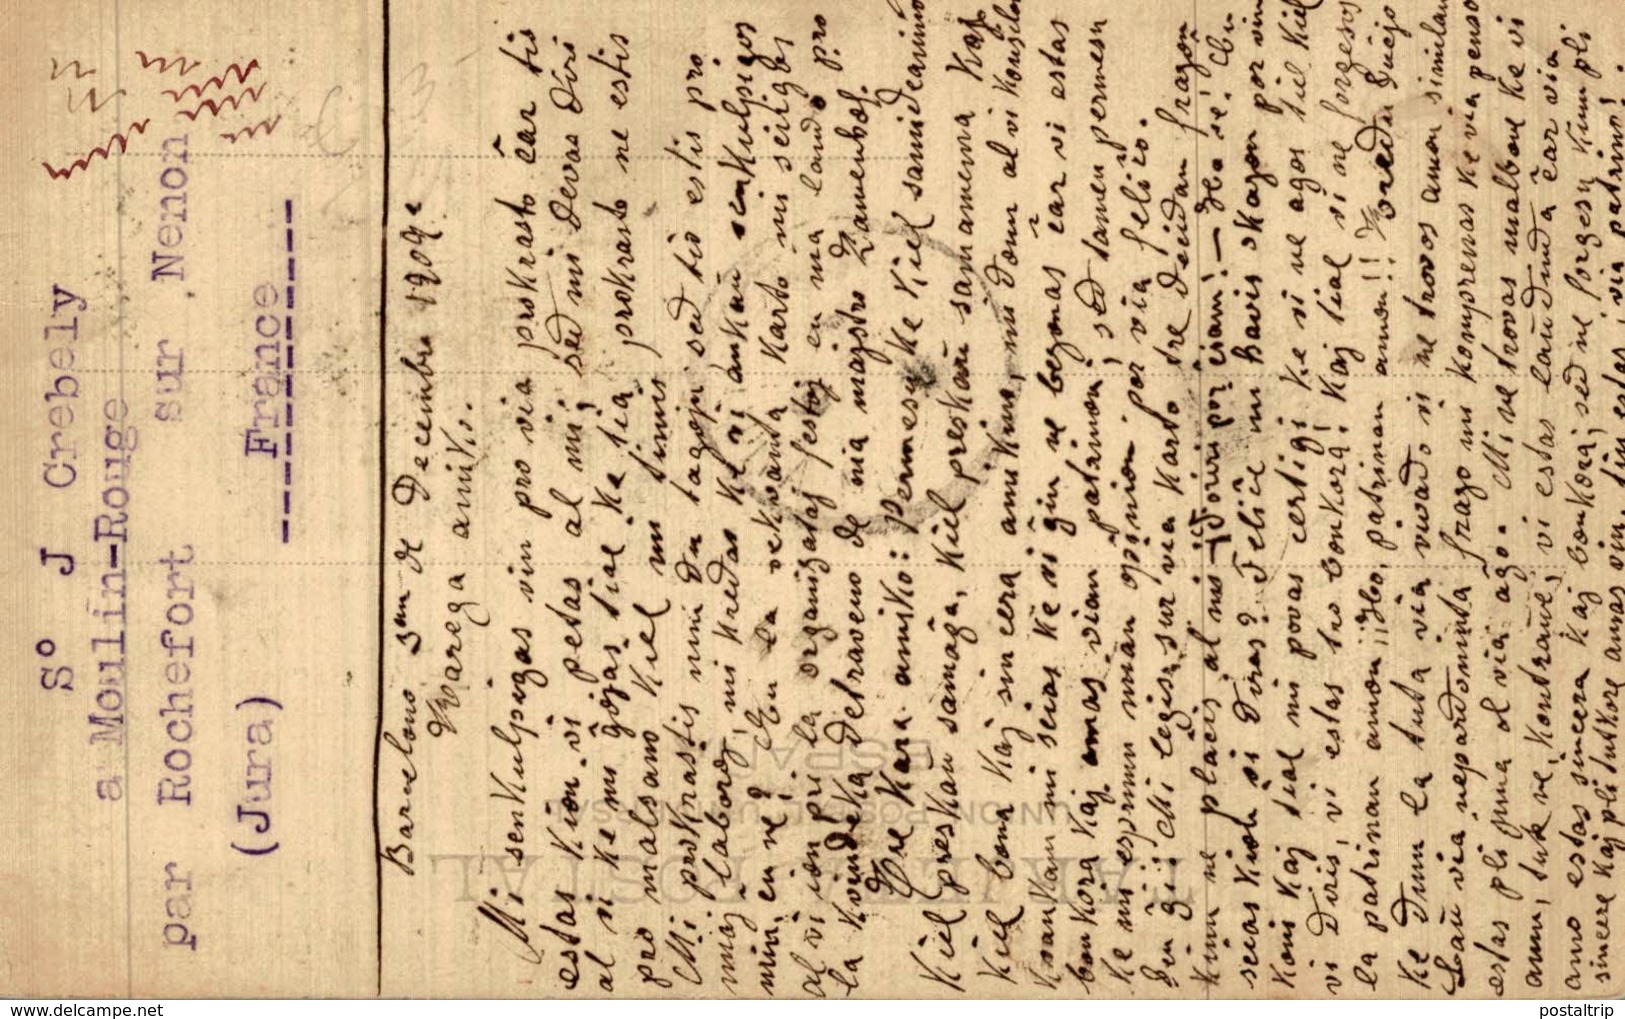 Sº J Crebely
a Moulin-Rouge
par Rochefort sur Nenon
(Jura) France
Barcelono 3an de Decembro 1909a
Karega amiko.
Mi senkulpigas vin pro via prokrasto ĉar tis
estas kion vi petas al mi; sed mi devas diri
al vi ke mi ĝojas tial ke tia prokrasto ne estis
pro malsano kiel mi timis
Mi prokrastis min du tagojn sed tio estis pro
miaj laboroj, mi kredas ke vi ankaŭ senkulpigos
min, ĉu ne? En la sekvanta karto mi skribos
al vi ion pri la organizataj festoj en mia lando pro
la kvindeka detraveno de nia majstro Zamenhof.
kara amiko: Permesu ke kiel samideanino
kiel preskaŭ samaĝa, kiel preskaŭ samamema kaj
kiel bona kaj sincera amikino, mi donu al vi konsilon
kvankam mi scias ke vi ĝin ne bezonas ĉar vi estas
bonkora kaj amas vian patrinon; sed tamen permesu
ke mi esprimu mian opinion por via feliĉo.
Mi legis sur via karto tre decidan frazon
kiun ne plaĉis al mi
scias kion vi diras? Feliĉe mi havis okazon por vin
koni kaj tial mi povas certigi ke vi ne agos tiel kiel
vi diris, vi estas tro bonkora! kaj tial vi ne forgesos
la patrinan amon ¡¡Ho, patrinan amon!! Kredu Duejo
ke dum la tuta via vivado vi ne trovos amon similan
Laŭ via nepardoninda frazo mi komprenas ke via penso
estas pli juna ol via aĝo. Mi ne trovas malbone ke vi
amu, tute ne, kontraŭe, vi estas laŭdinda ĉar via
amo estas sincera kaj bonkora; sed ne forgesu kiun pli
sincere kaj pli tutkore amas vin, tiu estas, via patrino!
UNION POSTALE UNIVERSELLE
ESPAÑA
TARJETA POSTAL
www.delcampe.net
postaltrip